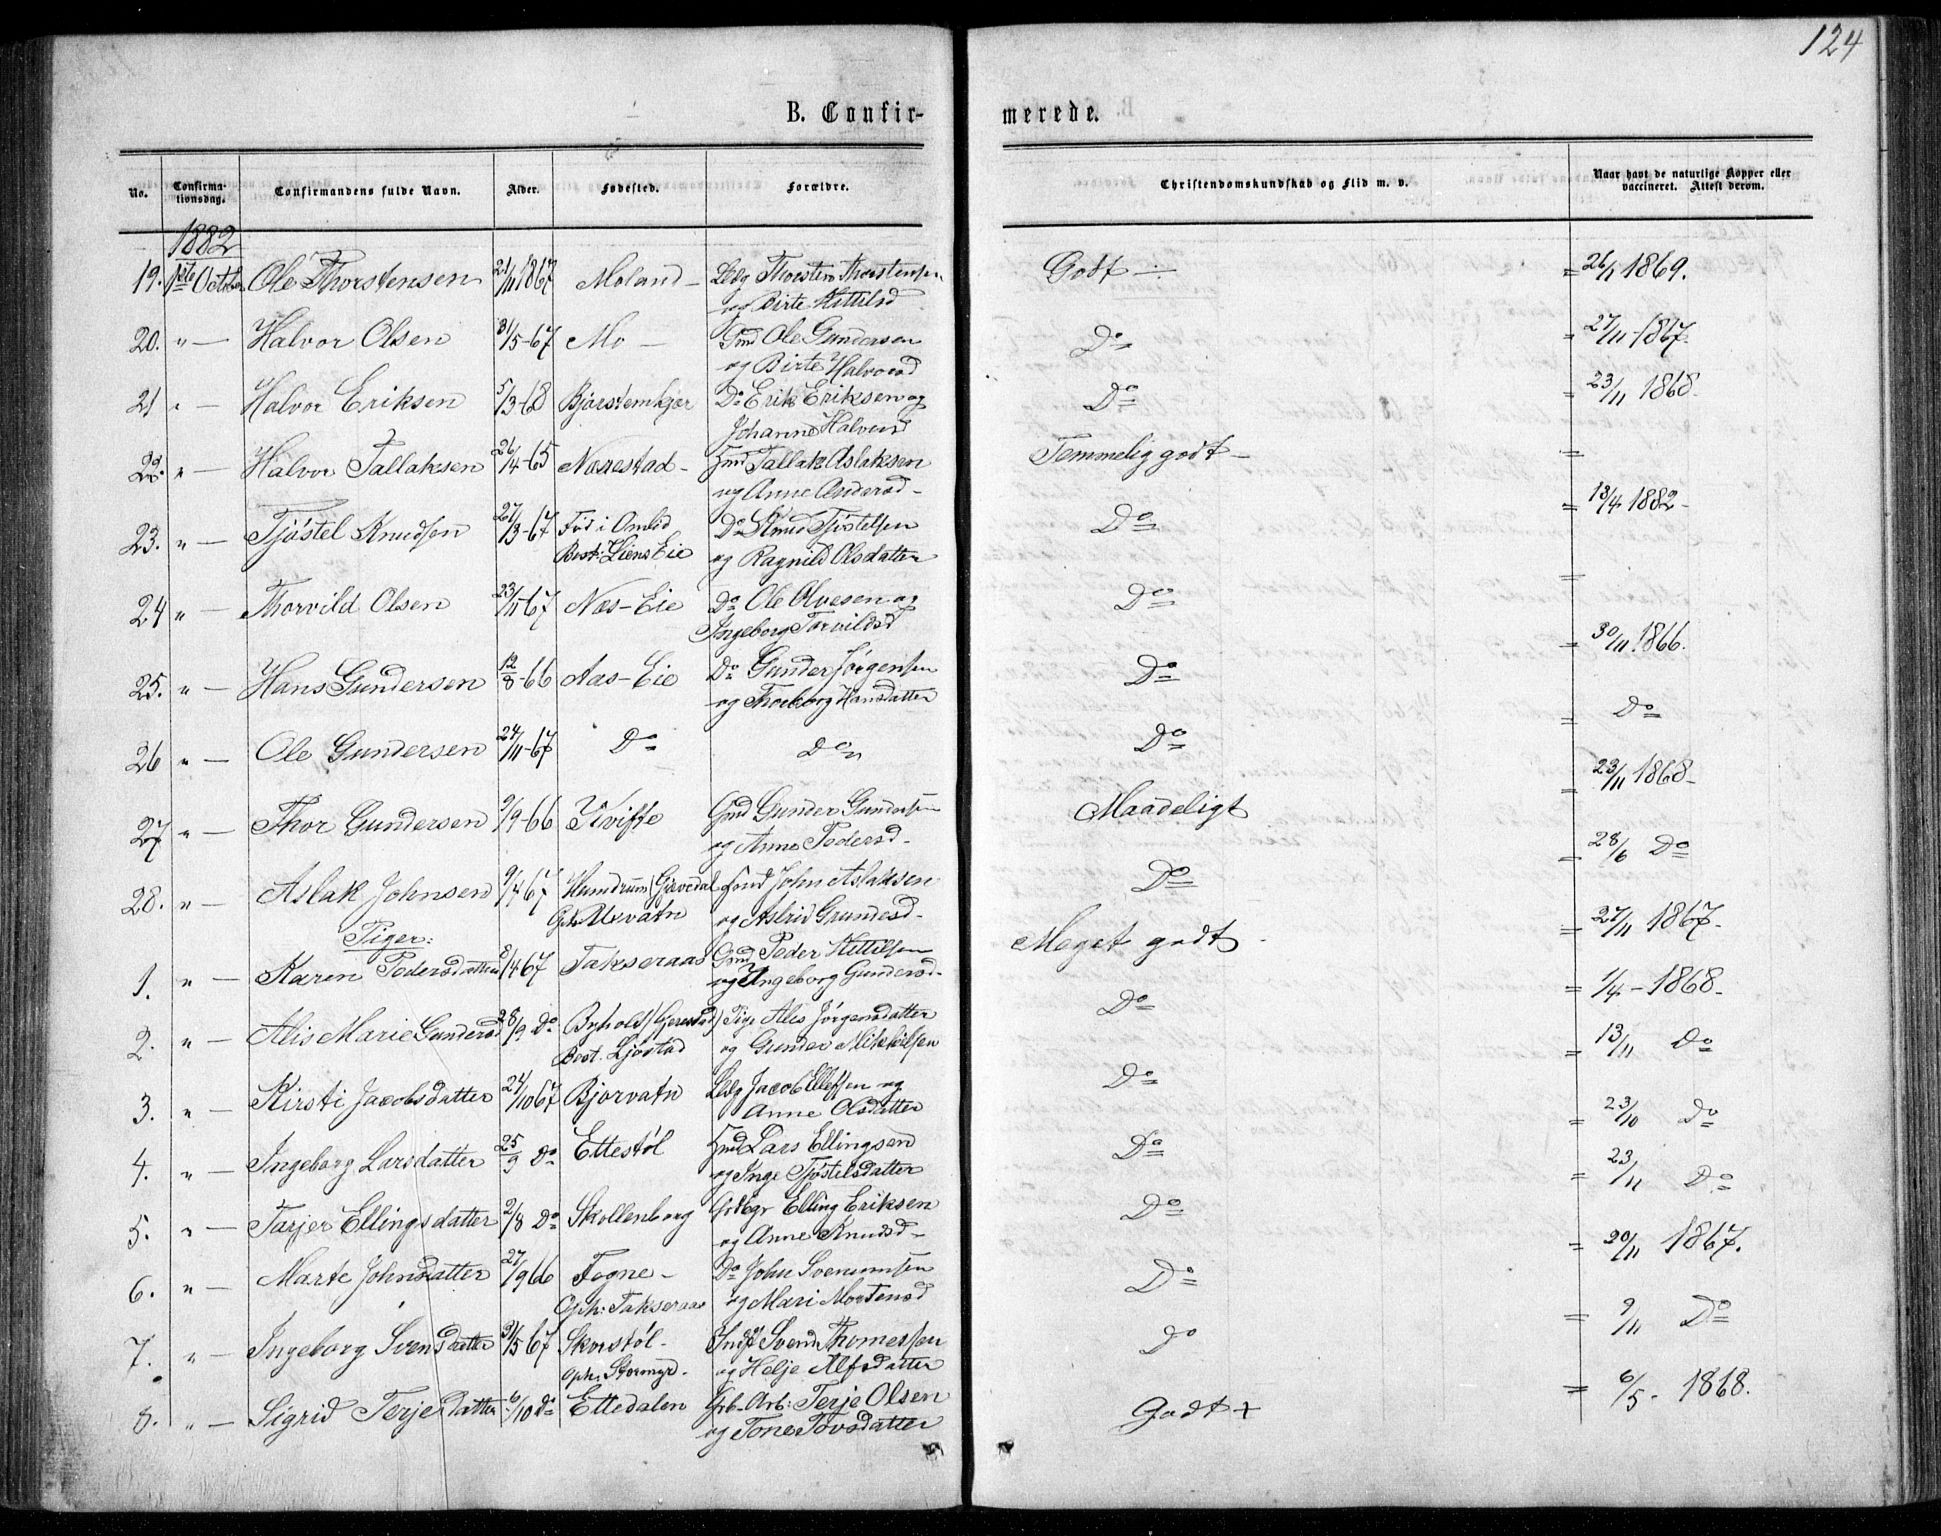 124
B. Confir-
merede.
No.
Confirma-
tionsdag.
Confirmandens fulde Navn.
Alder.
Fødested.
Forældre.
Christendomskundskab og Flid m. v.
Naar havt de naturlige Kopper eller
vaccineret. Attest derom.
1882
19. 1ste Octbr Ole Thorstensen 21/11 1867 Moland - Thorsten Thorstensen Godt ÷ = 26/1 1869.
og Birte Kittilsd
20. " — Halvor Olsen 31/5-67 Mo — Gmd Ole Gundersen Do = 27/11 1867.
og Birte Halvorsd
21 " — Halvor Eriksen 5/3-68 Bjørstemkjær Do Erik Eriksen og Do = 23/11 1868.
Johanne Halvorsd
22. " — Halvor Tallaksen 26/4-65 Narestad - Hmd Tallak Aslaksen Temmelig godt - =
og Anne Andersd -
23. " — Tjøstel Knudsen 27/3-67 Fød i Omlid Do Knud Tjøstelsen Do = 13/4 1882 -
Bost: Liens Eie og Ragnild Olsdatter
24 " — Thorvild Olsen 23/11-67 Næs-Eie Do Ole Olvesen og Do =
Ingeborg Torvildsd
25. " — Hans Gundersen 12/8-66 Aas-Eie Do Gunder Jørgensen Do = 30/11 1866.
og Thorborg Hansdatter
26 " — Ole Gundersen 24/11-67 Do Do Do = Do
27 " — Thor Gundersen 9/9-66 Gmd Gunder Gundersen Maadeligt = 23/11 1868-
og Anne Pedersd -
28. " — Aslak Johnsen 9/4 67 (Gjøvedal John Aslaksen Do = 28/6 Do
Oph: Uxvatn og Astrid Grundesd -
Piger:
1. " — Karen Pedersdatter 8/4 67 Takseraas Gmd Peder Kittilsen Meget godt - = 27/11 1867.
og Ingeborg Gundersd -
2. " — Alis Marie Gundersd 28/9 Do Byholt (Gjerestad) Pige Alis Jørgensdatter Do = 1/4 - 1868.
Bost. Ljøstad og Gunder Mikkelsen
3. " — Kirsti Jacobsdatter 24/10 67 Bjorvatn Jacob Ellefsen og Do = 13/11 Do
Anne Olsdatter
4. " — Ingeborg Larsdatter 25/9 Do Ettestøl Hmd Lars Ellingsen Do = 23/10 Do
og Inge Tjøstelsdatter
5. " — Tarjer Ellingsdatter 2/8 Do Skollenborg Elling Eriksen Do = 23/11 Do
og Anne Knudsd -
6. " — Marte Johnsdatter 27/9 66 Fogne - Do John Svenumsen Do = 20/11 1867.
Oph: Takseraas og Mari Mortensd
7. " — Ingeborg Svensdatter 31/5 67 Skorstøl - Indst Svend Thomessen Do = 9/11 Do
Oph: Stormyr - og Helje Alfsdatter
8. " — Sigrid Terjesdatter 6/10 Do Ettedalen Grb-Arb: Terje Olsen Godt + = 6/5 - 1868.
og Tone Tovsdatter